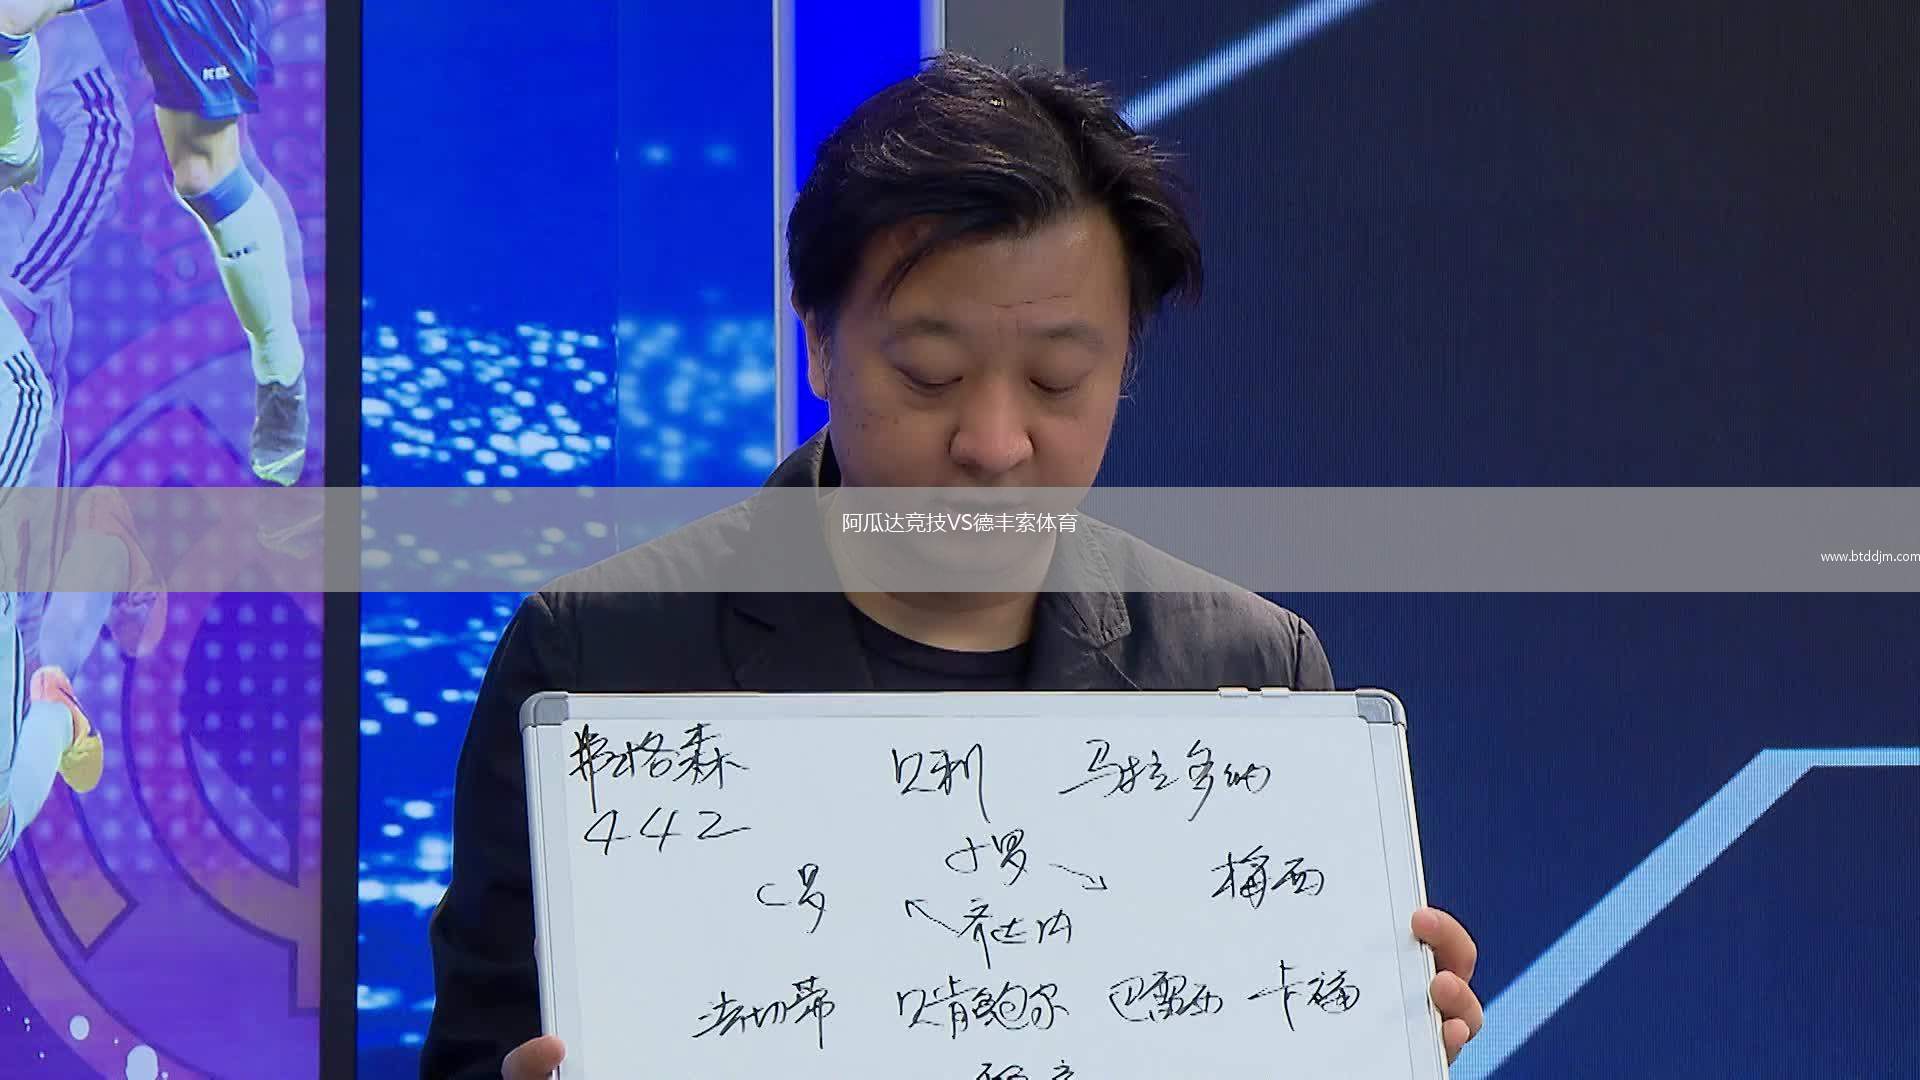 KEL
阿瓜达竞技VS德丰索体育
www.btddjm.com
弗格森 贝利 马拉多纳
442
小罗
C罗 梅西
齐达内
法切蒂 贝肯鲍尔 巴雷西 卡福